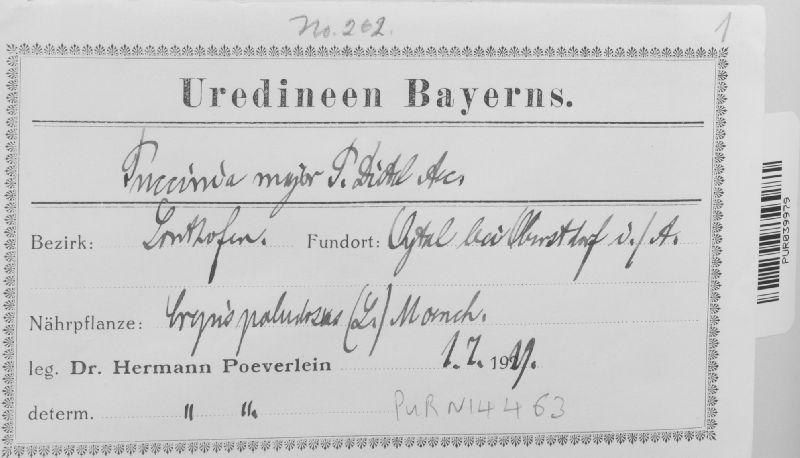 No. 262. 1
Uredineen Bayerns.
Puccinia major P. Dietel Aec.
Bezirk: Sonthofen. Fundort: Oytal bei Oberstdorf i./A.
Nährpflanze: Crepis paludosa (L.) Moench.
leg. Dr. Hermann Poeverlein 1.7. 19
determ. " ".
PUR N14463
PUR039979